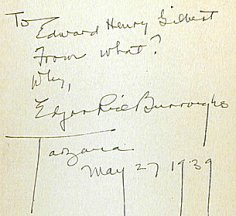 To
Edward Henry Gilbert
From what?
Why,
Edgar Rice Burroughs
Tarzana
May 27 1939